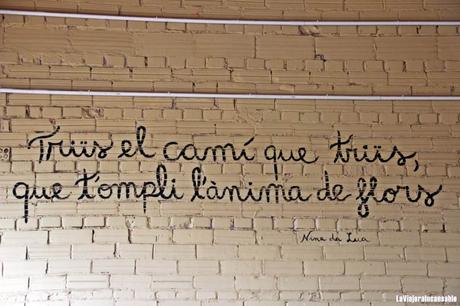 Triïs el camí que triïs,
que t'ompli l'ànima de flors
Nina da Lua
LaViajeraIncansable